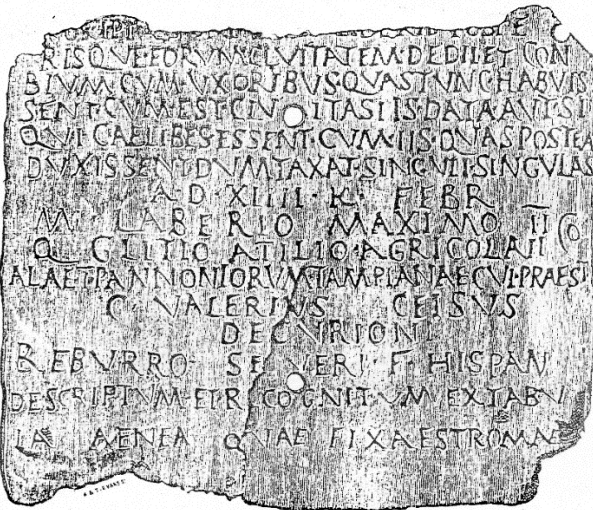 RISQVE EORVM CIVITATEM DEDIT ET CON
BIVM CVM VXORIBVS QVAS TVNC HABVIS
SENT CVM EST CIVITAS IIS DATA AVT SI
QVI CAELIBES ESSENT CVM IIS QVAS POSTEA
DVXISSENT DVMTAXAT SINGVLI SINGVLAS
A·D·XIIII·K·FEBR
M LABERIO MAXIMO II
Q GLITIO ATILIO·AGRICOLA II
ALAE I PANNONIORVM TAMPIANAE CVI PRAEST
C VALERIVS CELSVS
DECVRIONI
REBVRRO SEVERI F HISPAN
DESCRIPTVM ET RECOGNITVM EX TABV
LA AENEA QVAE FIXA EST ROMAE